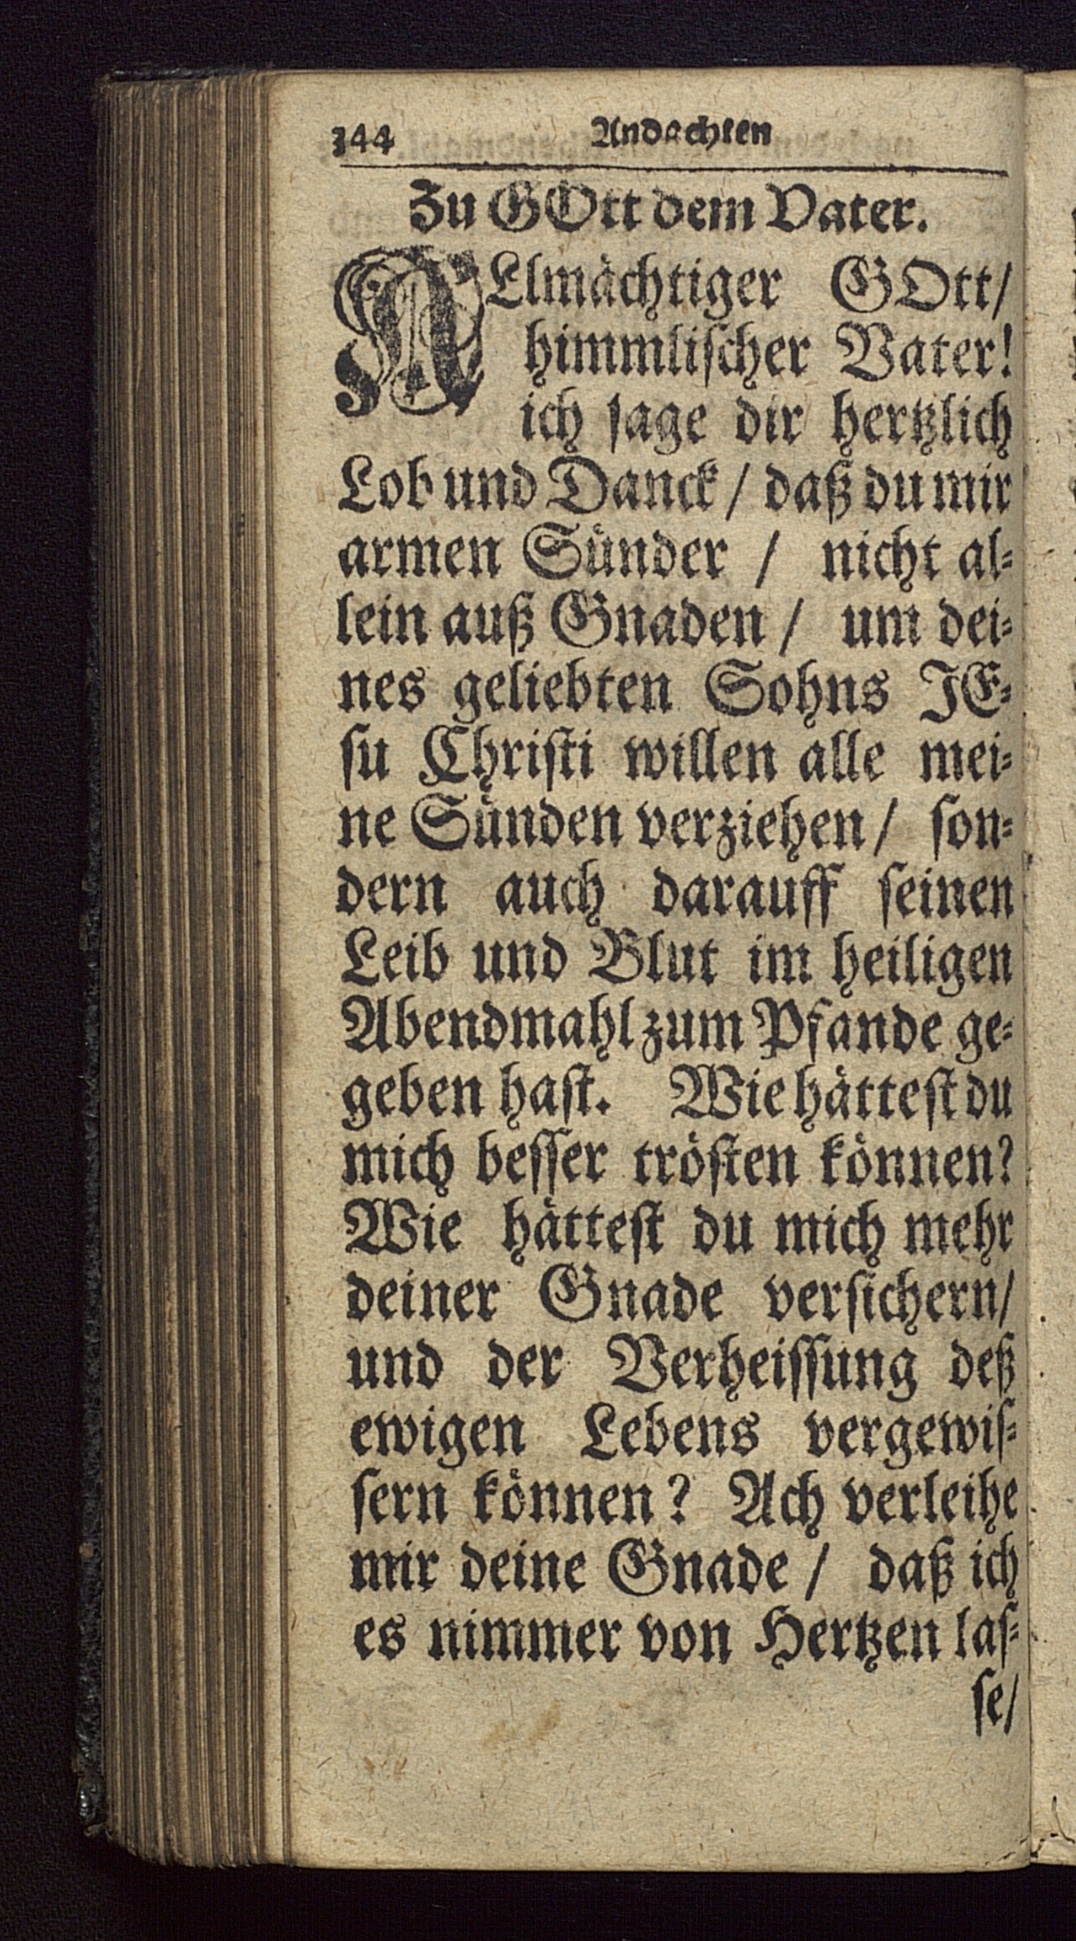 344 Andachten
Zu GOtt dem Vater.
ALlmächtiger GOtt/
himmlischer Vater!
ich sage dir hertzlich
Lob und Danck / daß du mir
armen Sünder / nicht al-
lein auß Gnaden / um dei-
nes geliebten Sohns JE-
su Christi willen alle mei-
ne Sünden verziehen / son-
dern auch darauff seinen
Leib und Blut im heiligen
Abendmahl zum Pfande ge-
geben hast. Wie hättest du
mich besser trösten können?
Wie hättest du mich mehr
deiner Gnade versichern/
und der Verheissung deß
ewigen Lebens vergewis-
sern können? Ach verleihe
mir deine Gnade / daß ich
es nimmer von Hertzen las-
se/